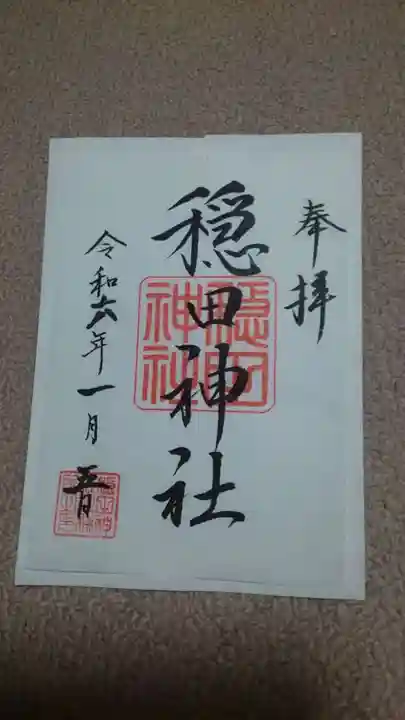 奉拝
穏田神社
令和六年一月五日
穏田神社